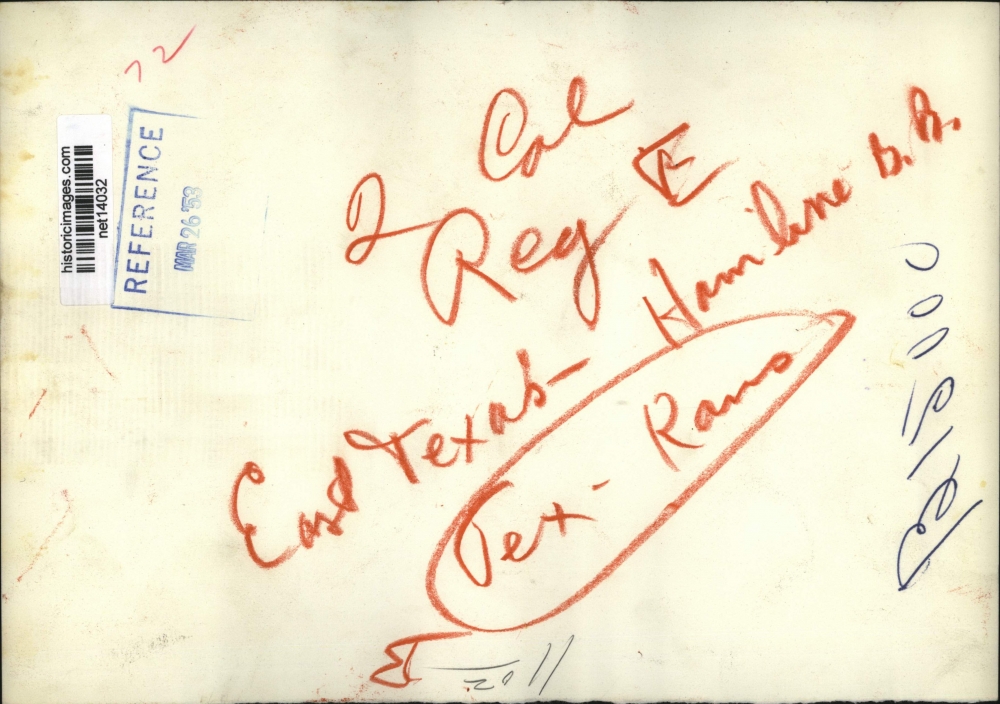 72
historicimages.com
net14032
REFERENCE
MAR 26 '53
2 Col
Reg E
East Texas - Hamline B.B.
Tex. Rams
E